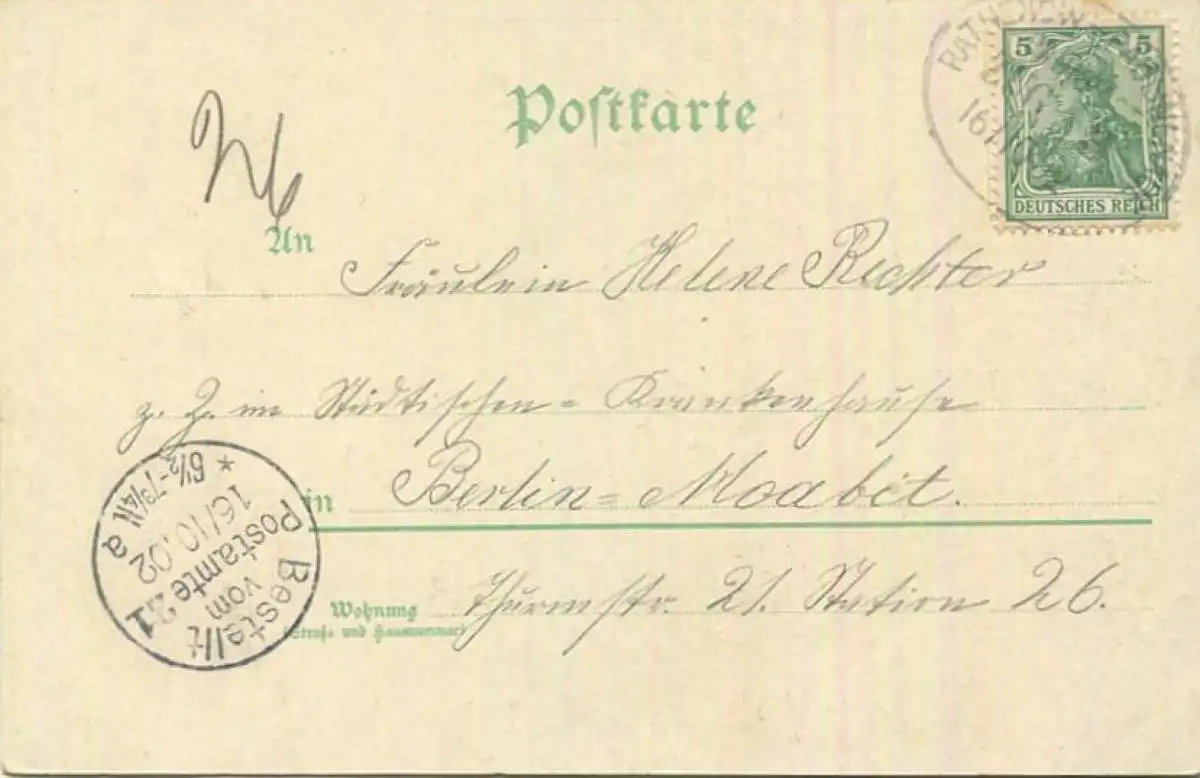 Postkarte
5 5
DEUTSCHES REICH
RATHENOW
16.10
26
An
Fräulein Helene Richter
z. Z. im Städtischen = Krankenhause
in Berlin = Moabit.
Wohnung
(Straße und Hausnummer)
Thurmstr. 21. Station 26.
Bestellt
vom
Postamte 21
16/10.02
6½-7¾N
a